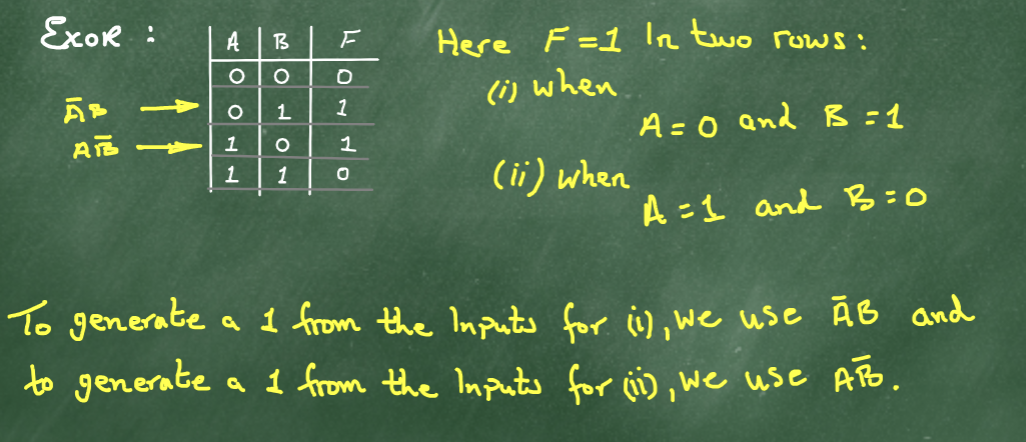 Exor :
A B F
0 0 0
ĀB → 0 1 1
AB̄ → 1 0 1
1 1 0
Here F = 1 In two rows :
(i) when
A = 0 and B = 1
(ii) when
A = 1 and B = 0
To generate a 1 from the Inputs for (i), we use ĀB and
to generate a 1 from the Inputs for (ii), we use AB̄.